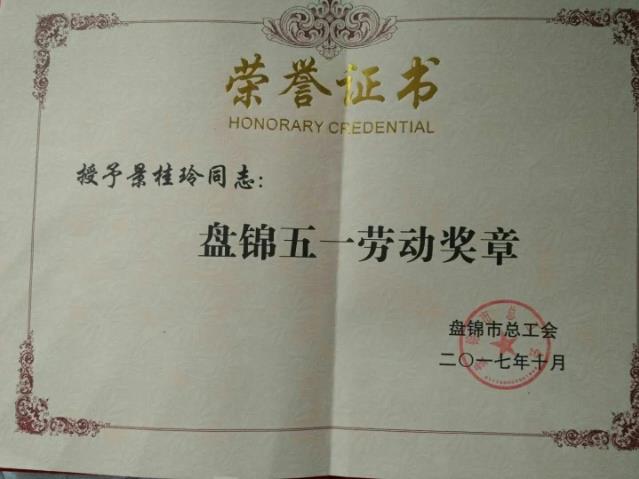 荣誉证书
HONORARY CREDENTIAL
授予景桂玲同志：
盘锦五一劳动奖章
盘锦市总工会
二〇一七年十月